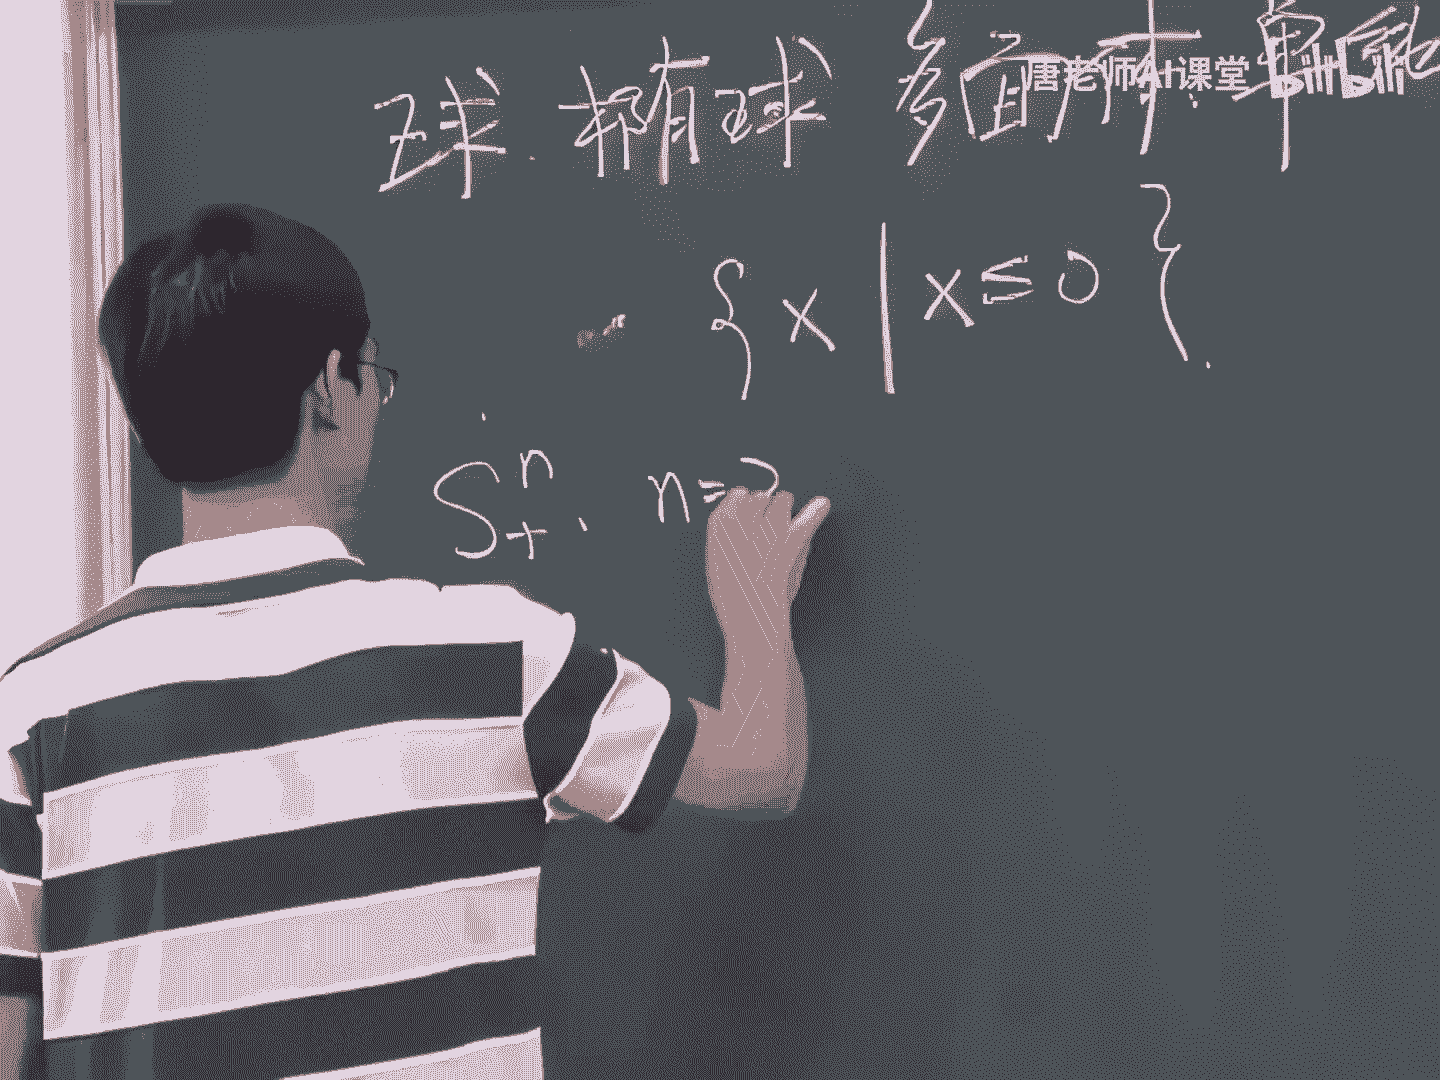 球. 椭球 多面体. 单
唐老师AI课堂 bilibili
{ x | x ≤ 0 }.
S₊ⁿ. n=2